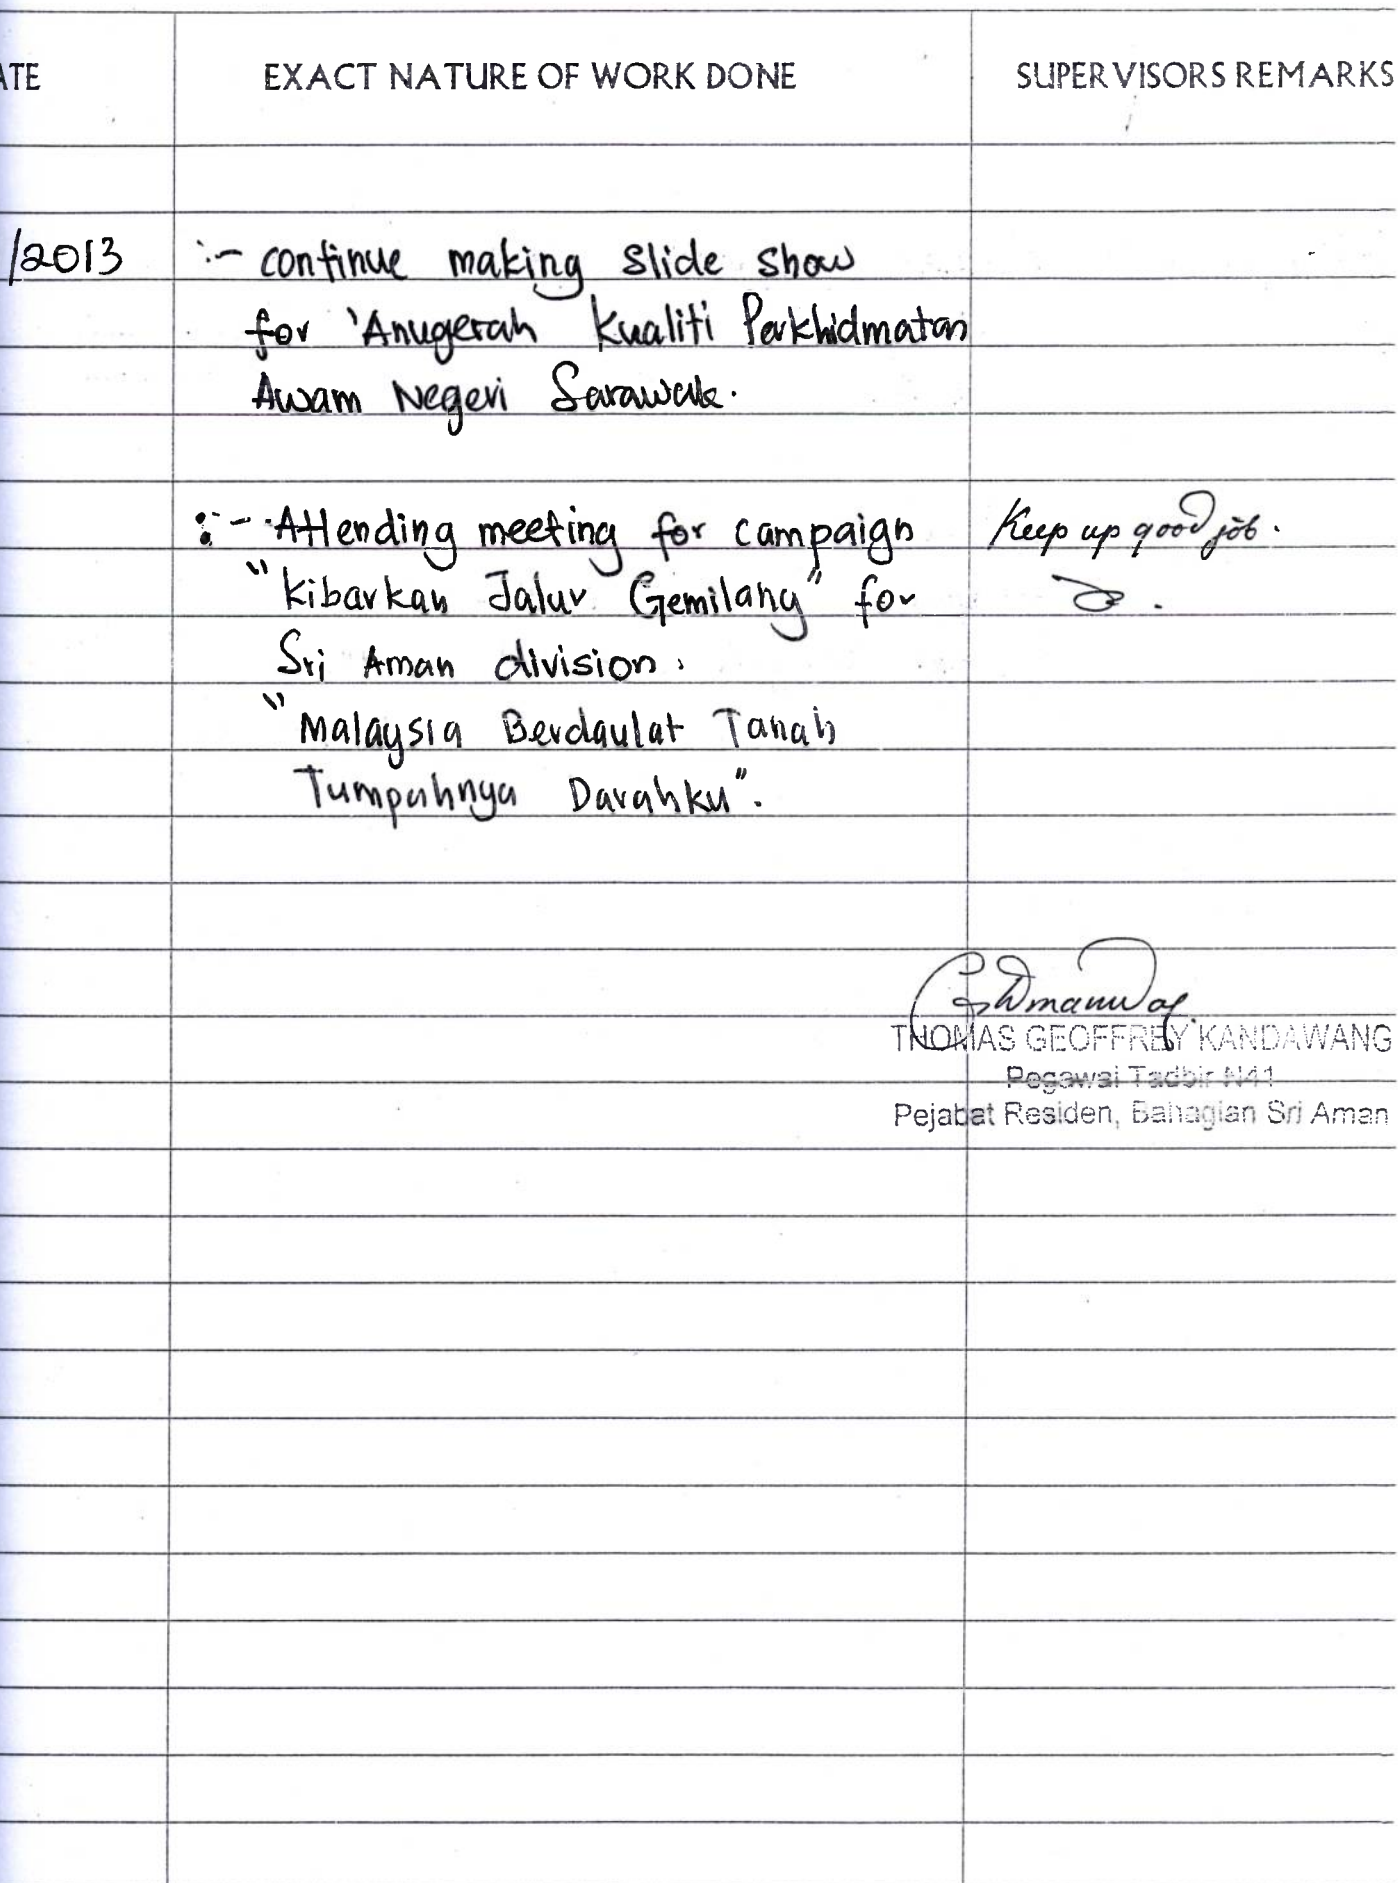 ATE EXACT NATURE OF WORK DONE SUPERVISORS REMARKS
/2013 :- continue making slide show
for 'Anugerah Kualiti Perkhidmatan
Awam Negeri Sarawak.
:- Attending meeting for campaign Keep up good job.
"Kibarkan Jalur Gemilang" for
Sri Aman division.
"Malaysia Berdaulat Tanah
Tumpahnya Darahku".
THOMAS GEOFFREY KANDAWANG
Pegawai Tadbir N41
Pejabat Residen, Bahagian Sri Aman